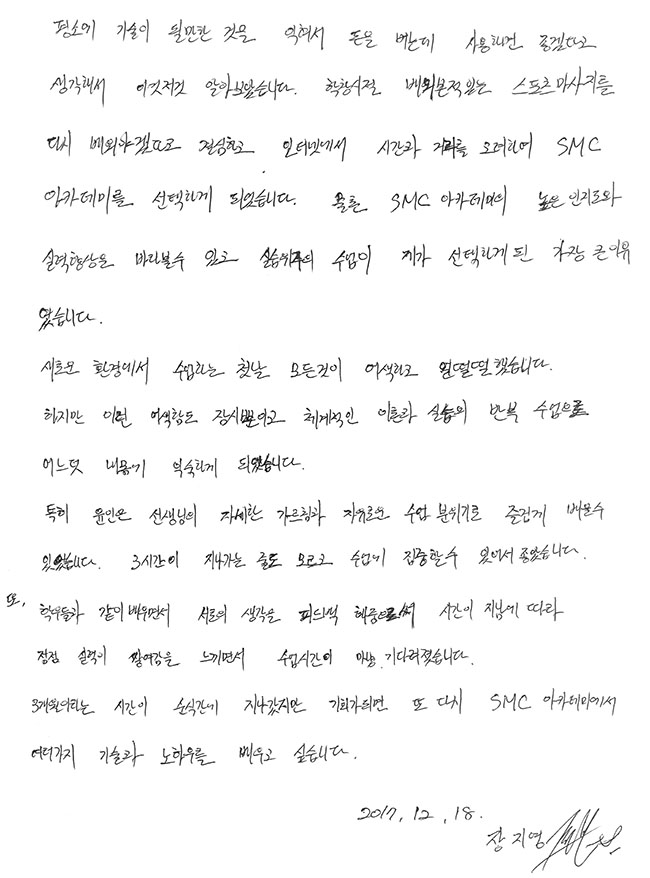 평소에 기술이 될만한 것을 익혀서 돈을 버는데 사용하면 좋겠다고
생각해서 이것저것 알아보았습니다. 학창시절 배워본적있는 스포츠마사지를
다시 배워야겠다고 결심하고 인터넷에서 시간과 거리를 고려하여 SMC
아카데미를 선택하게 되었습니다. 물론 SMC 아카데미의 높은 인지도와
실력향상을 바라볼수 있고 실습위주의 수업이 제가 선택하게 된 가장 큰이유
였습니다.
새로운 환경에서 수업하는 첫날 모든것이 어색하고 얼떨떨했습니다.
하지만 이런 어색함도 잠시뿐이고 체계적인 이론과 실습의 반복 수업으로
어느덧 내몸에 익숙하게 되었습니다.
특히 윤인은 선생님의 자세한 가르침과 자유로운 수업 분위기로 즐겁게 배울수
있었습니다. 3시간이 지나가는 줄도 모르고 수업에 집중할수 있어서 좋았습니다.
또, 학생들과 같이배우면서 서로의 생각을 피드백 해줌으로써 시간이 지남에 따라
점점 실력이 쌓여감을 느끼면서 수업시간이 마냥 기다려졌습니다.
3개월이라는 시간이 순식간에 지나갔지만 기회가되면 또 다시 SMC 아카데미에서
여러가지 기술과 노하우를 배우고 싶습니다.
2017, 12, 18.
장지영